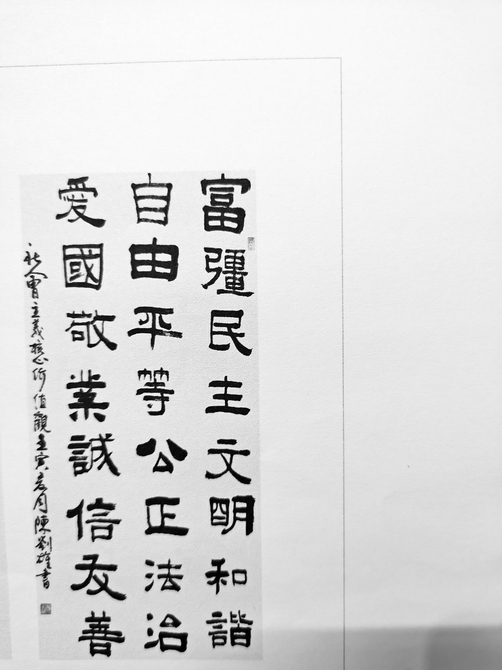 富彊民主文明和諧
自由平等公正法治
愛國敬業誠信友善
社會主義核心價值觀壬寅 月陳 雄書